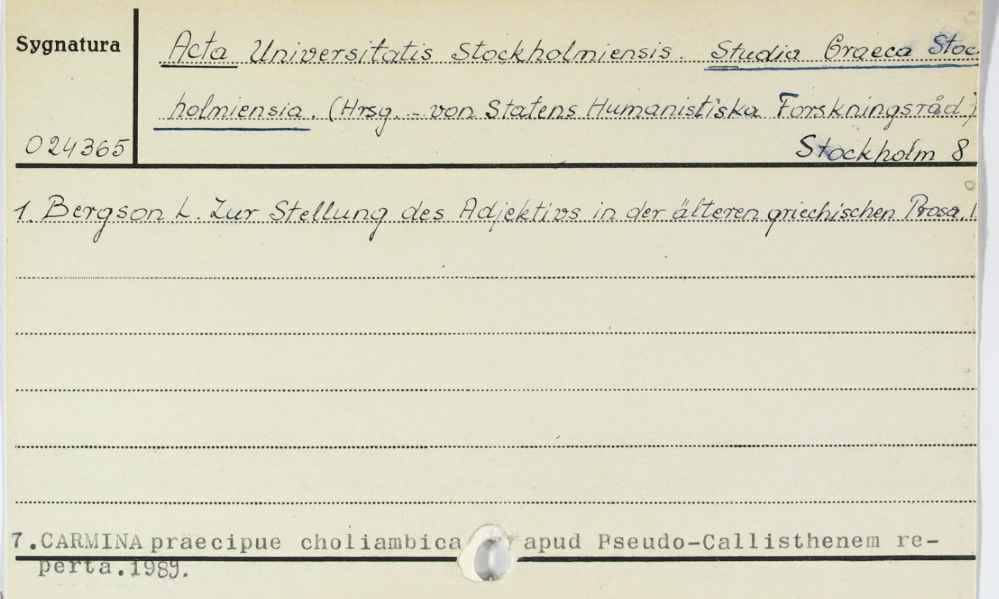 Sygnatura
Acta Universitatis Stockholmiensis. Studia Graeca Stoc
holmiensia. (Hrsg. - von Statens Humanistiska Forskningsråd)
024365
Stockholm 8
1. Bergson L. Zur Stellung des Adjektivs in der älteren griechischen Prosa.
7.CARMINA praecipue choliambica apud Pseudo-Callisthenem re-
perta.1989.